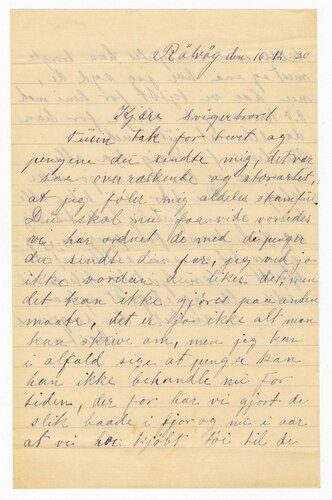 Rålvåg den 16-12 30
Kjære Svigerbrord
Tusin Tak for brevet og
pengene du sendte mig, det var
saa overraskende og storartet,
at jeg föler mig aldeles skamful.
Du skal nu faa vide vorledes
vi har ordnet de med de penger
du sendte din par, jeg ved jo
ikke vordan du liker det, men
det kan ikke gjöres paa anden
maate, det er jo ikke alt man
kan skrive om, men jeg kan
i alfald sige at penger kan
han ikke behandle nu for
tiden, der for har vi gjort de
slik baade i fjor og nu i aar
at vi har kjöbt töi til de